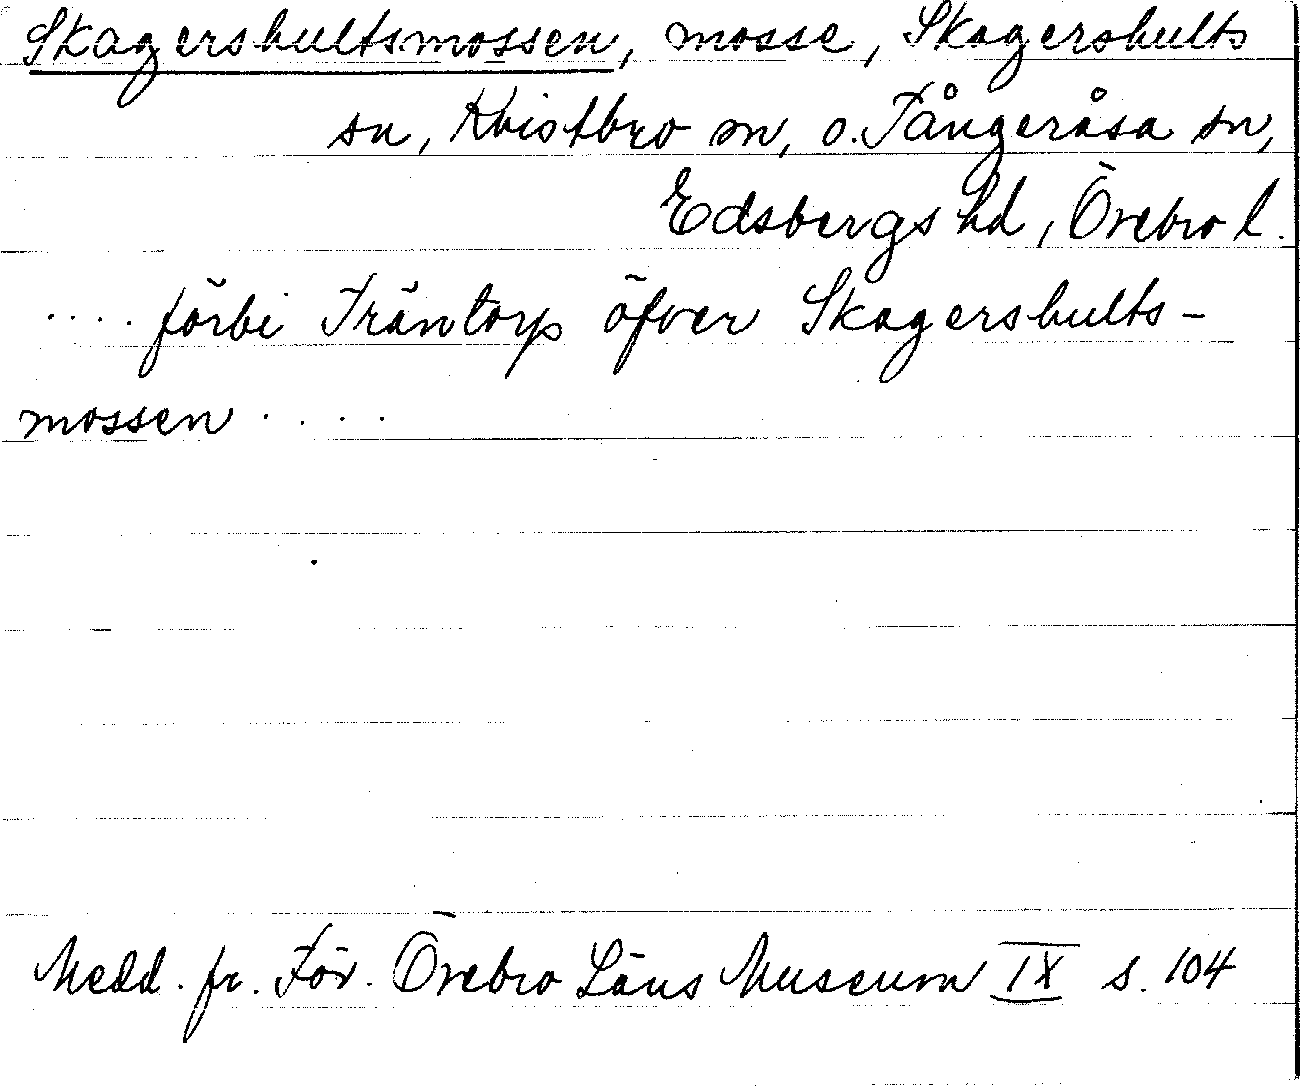 Skagershultsmossen, mosse, Skagershults
sn, Kvistbro sn, o. Tångeråsa sn,
Edsbergs hd, Örebro l.
.... förbi Träntorp öfver Skagershults-
mossen ....
Medd. fr. För. Örebro Läns Museum IX s. 104